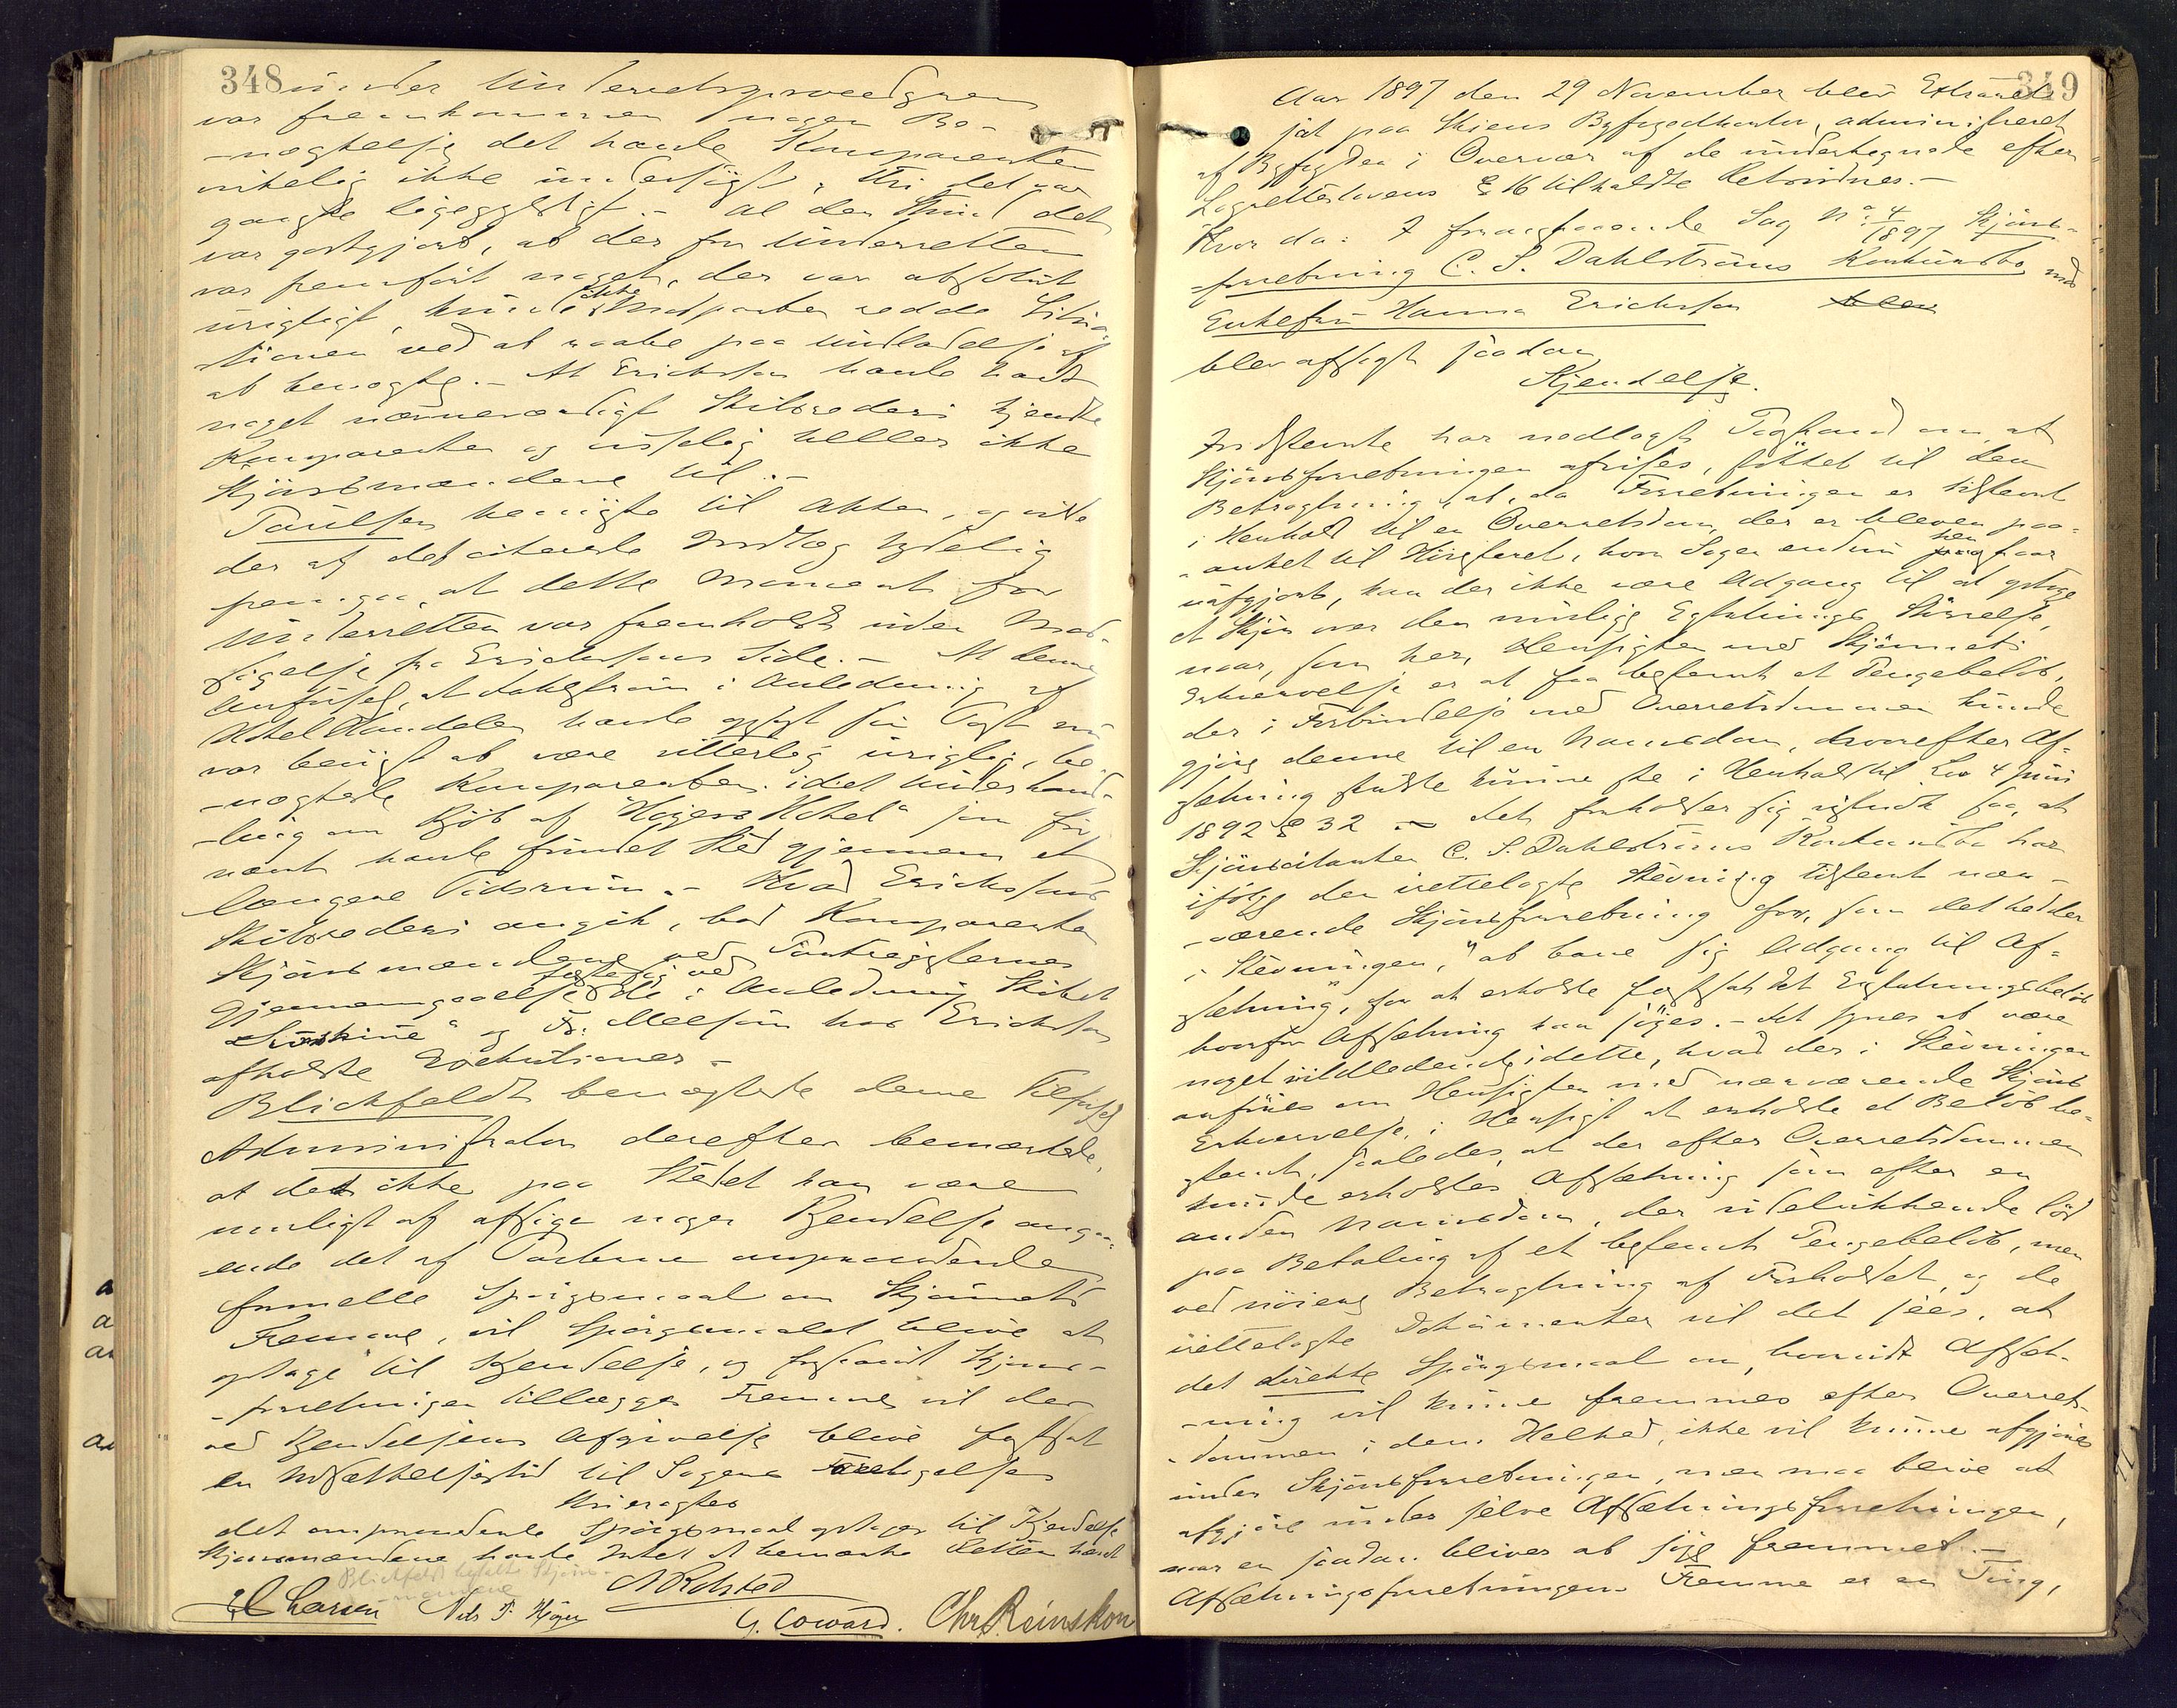 348
under Underretsproceduren
var fremkommen nogen Be-
-nægtelse det havde Komparenten
virkelig ikke undersøgt, thi det var
ganske ligegyldigt.- Al den Stund det
var godtgjort, at der for Underretten
var fremført noget, der var absolut
urigtigt, kunde ikke Modparten redde Situa-
tionen ved at raabe paa Undladelse af
at benægte.- At Erichsen havde havt
noget nævneværdigt Skibsrederi kjendte
Komparenten og visselig heller ikke
Skjønsmændene til.-
Paulsen henviste til Akten, og vilde
der af det citerede Indlæg tydelig
fremgaa, at dette Moment for
Underretten var fremholdt uden Mod-
sigelse fra Erichsens Side.- At denne
Anførsel, at Dahlstrøm i Anledning af
Hotel Handelen havde opsagt sin Post nu
var bevist at være vitterlig urigtig, be-
-nægtede Komparenten idet Underhand-
-ling om Kjøb af "Høyers Hotel" som før
nævnt havde fundet Sted gjennem et
længere Tidsrum.- Hvad Erichsens
Skibsrederi angik, bad Komparenten
Skjønsmændene ved Pantregisternes
Gjennemgaaelse fæste sig ved de i Anledning Skibet
og Fr. Melsom hos Erichsen
afholdte Exekutioner.-
Blichfeldt benægtede denne Tilførsel
Administrator derefter bemærkede,
at det ikke paa Stedet kan være
muligt at afsige nogen Kjendelse angaa-
ende det af Parterne omprocederede
formelle Spørgsmaal om Skjønnets
Fremme, vil Spørgsmaalet blive at
optage til Kjendelse, og forsaavidt Skjøns-
-forretningen tillægges Fremme vil der
ved Kjendelsens Afgivelse blive fastsat
en Udsættelsestid til Sagens Foretagelse
Thi eragtes
det omprocederede Spørgsmaal optages til Kjendelse
Skjønsmændene havde Intet at bemærke Retten hævet
Blichfeldt
Larsen Nils P. Høyer A Rolsted
G. Coward. Chr. Reinskou
349
Aar 1897 den 29 November blev Extraret
sat paa Skiens Byfogedkontor, administreret
af Byfogden i Overvær af de undertegnede efter
Lagrettelovens § 16 tilkaldte Retsvidner.-
Hvor da: I fremstaaende Sag No 4/1897 Skjøns-
forretning C. S. Dahlstrøms Konkursbo mod
Enkefru Hanna Erichsen blev
blev afsagt saadan
Kjendelse.
Indstevnte har nedlagt Paastand om, at
Skjønsforretningen afvises, støttet til den
Betragtning, at, da Forretningen er tilstevnt
i Henhold til en Overretsdom, der er bleven paa-
-anket til Høiesteret, hvor Sagen endnu hen staar
uafgjort, kan der ikke være Adgang til at optage
et Skjøn over den mulige Erstatnings Størrelse,
naar, som her, Hensigten med Skjønnets
Erhvervelse er at faa bestemt et Pengebeløb,
der i Forbindelse med Overretsdommen kunde
gjøre denne til en Navnsdom, hvorefter Af-
sætning skulde kunne ske i Henhold til Lov 4 Juni
1892 § 32 – Det forholder sig vistnok saa, at
Skjønscitanten C. S. Dahlstrøms Konkursbo har
ifølge den irettelagte Stevning tilstevnt nær-
-værende Skjønsforretning for, som det hedder
i Stevningen, "at bane sig Adgang til Af-
sætning", for at erholde fastsat det Erstatningsbeløb
hvorfor Afsætning kan søges.- Det synes at være
noget vildledende i dette, hvad der i Stevningen
anføres om Hensigten med nærværende Skjøns
Erhvervelse, i Hensigt at erholde et Beløb be-
stemt, saaledes, at der efter Overretsdommen
kunde erholdes Afsætning som efter en
anden Navnsdom, der udelukkende lød
paa Betaling af et bestemt Pengebeløb, men
ved nøiere Betragtning af Forholdet og de
irettelagte Dokumenter vil det sees, at
det direkte Spørgsmaal om, hvorvidt Afsæt-
-ning vil kunne fremmes efter Overrets-
-dommen i dens Helhed, ikke vil kunne afgjøres
under Skjønsforretningen, men maa blive at
afgjøre under selve Afsætningsforretningen,
naar en saadan bliver at søge fremmet.-
Afsætningsforretningens Fremme er en Ting,